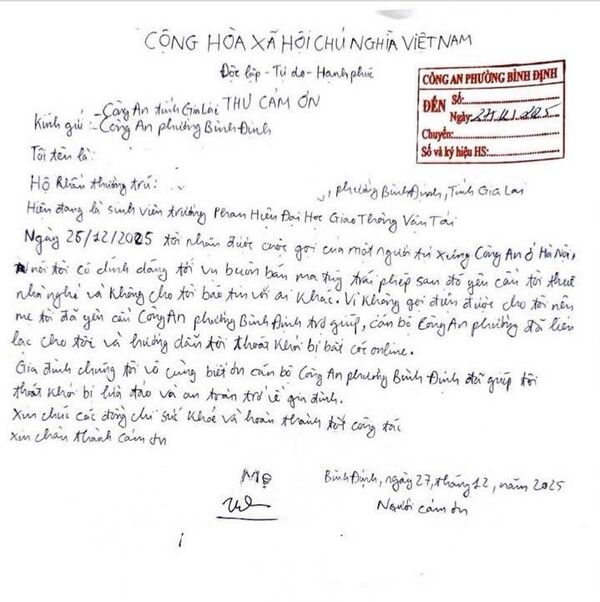 CỘNG HÒA XÃ HỘI CHỦ NGHĨA VIỆT NAM
Độc lập - Tự do - Hạnh phúc
THƯ CẢM ƠN
CÔNG AN PHƯỜNG BÌNH ĐỊNH
ĐẾN Số:
Ngày: 27/12/2025
Chuyển:
Số và ký hiệu HS:
Kính gửi - Công An tỉnh Gia Lai
- Công An phường Bình Định
Tôi tên là:
Hộ khẩu thường trú: , phường Bình Định, Tỉnh Gia Lai
Hiện đang là sinh viên trường Phân Hiệu Đại Học Giao Thông Vận Tải
Ngày 25/12/2025 tôi nhận được cuộc gọi của một người tự xưng Công An ở Hà Nội,
nói tôi có dính dáng tới vụ buôn bán ma túy trái phép sau đó yêu cầu tôi thuê
nhà nghỉ và không cho tôi báo tin với ai khác. Vì không gọi điện được cho tôi nên
mẹ tôi đã yêu cầu Công An phường Bình Định trợ giúp, cán bộ Công An phường đã liên
lạc cho tôi và hướng dẫn tôi thoát khỏi bị bắt cóc online.
Gia đình chúng tôi vô cùng biết ơn cán bộ Công An phường Bình Định đã giúp tôi
thoát khỏi bị lừa đảo và an toàn trở về gia đình.
Xin chúc các đồng chí sức khỏe và hoàn thành tốt công tác
xin chân thành cảm ơn
Mẹ
Bình Định, ngày 27, tháng 12, năm 2025
Người cảm ơn